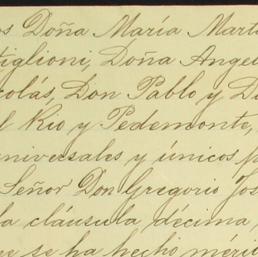 os Doña María Mart
tiglioni, Doña Angel
colás, Don Pablo y D
l Rio y Pedemonte,
universales y únicos p
Señor Don Gregorio Jos
la cláusula décima,
que se ha hecho mérit